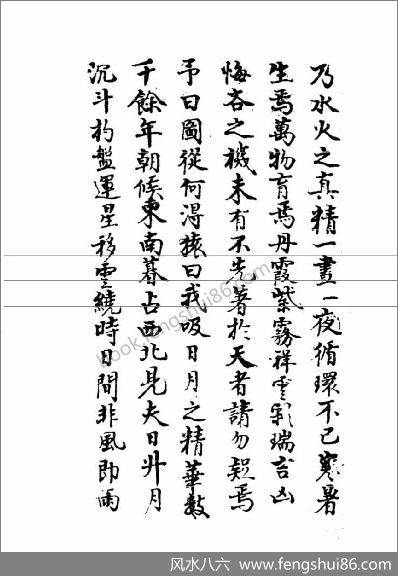 乃水火之真精一晝一夜循環不已寒暑
生焉萬物育焉丹霞紫霧祥雲彩瑞吉凶
悔吝之機未有不先著於天者請勿疑焉
予曰圖從何得猿曰我吸日月之精華數
千餘年朝候東南暮占西北見夫日升月
沉斗杓盤運星移雲繞時日間非風即雨
book.fengshui86.com
风水八六 www.fengshui86.com